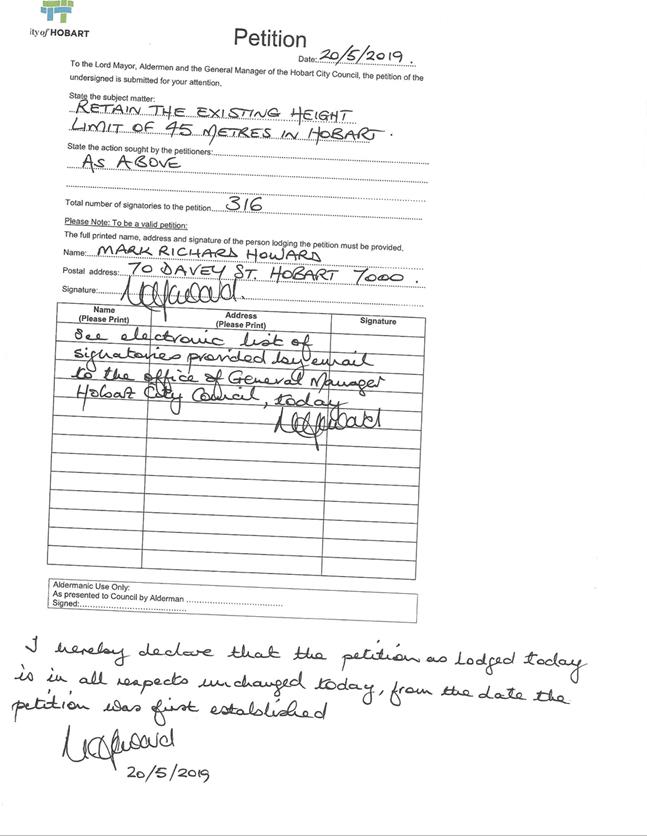 ity of HOBART
Petition
Date: 20/5/2019.
To the Lord Mayor, Aldermen and the General Manager of the Hobart City Council, the petition of the
undersigned is submitted for your attention.
State the subject matter:
RETAIN THE EXISTING HEIGHT
LIMIT OF 45 METRES IN HOBART.
State the action sought by the petitioners:
AS ABOVE
Total number of signatories to the petition 316
Please Note: To be a valid petition:
The full printed name, address and signature of the person lodging the petition must be provided.
Name: MARK RICHARD HOWARD
Postal address: 70 DAVEY ST. HOBART 7000.
Signature:
Name (Please Print) Address (Please Print) Signature
See electronic list of
signatories provided by email
to the office of General Manager
Hobart City Council, today
Aldermanic Use Only:
As presented to Council by Alderman
Signed:
I hereby declare that the petition as lodged today
is in all respects unchanged today, from the date the
petition was first established
20/5/2019